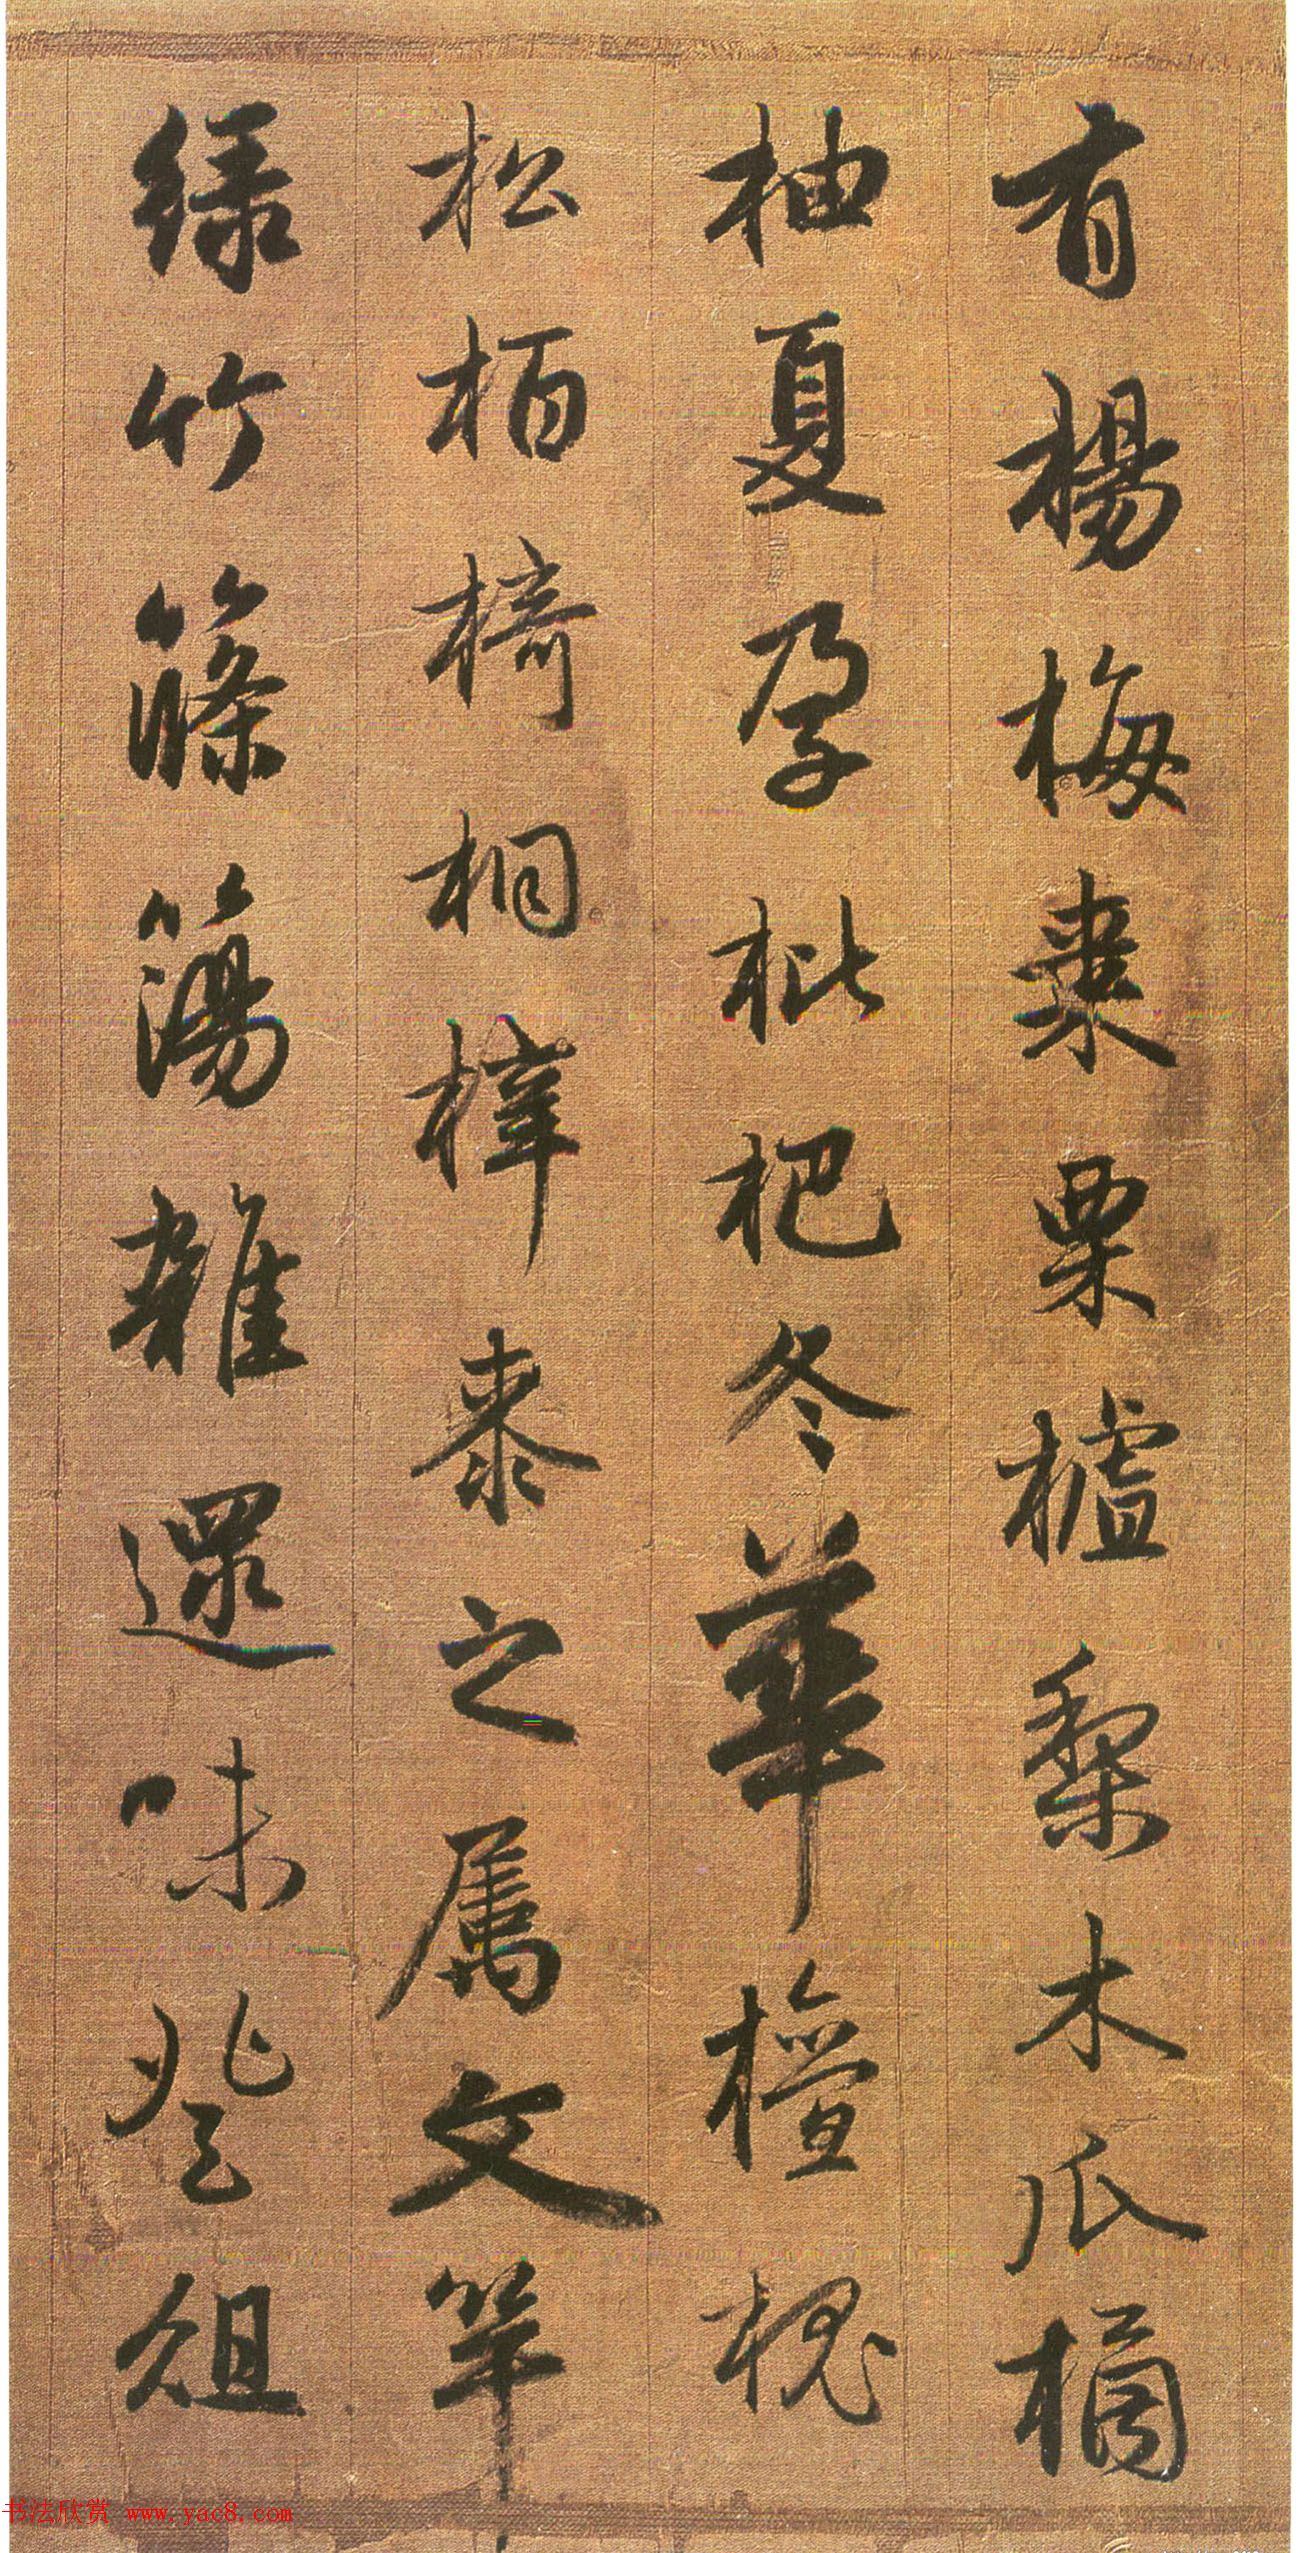 有楊梅棗栗櫨梨木瓜橘
柚夏孕枇杷冬華橙槐
松栢椅桐梓黍之属文竿
緑竹篠簜雜遝味登俎
书法欣赏 www.yac8.com